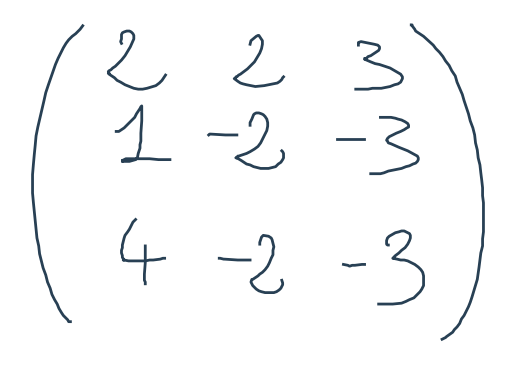 2 2 3
1 -2 -3
4 -2 -3